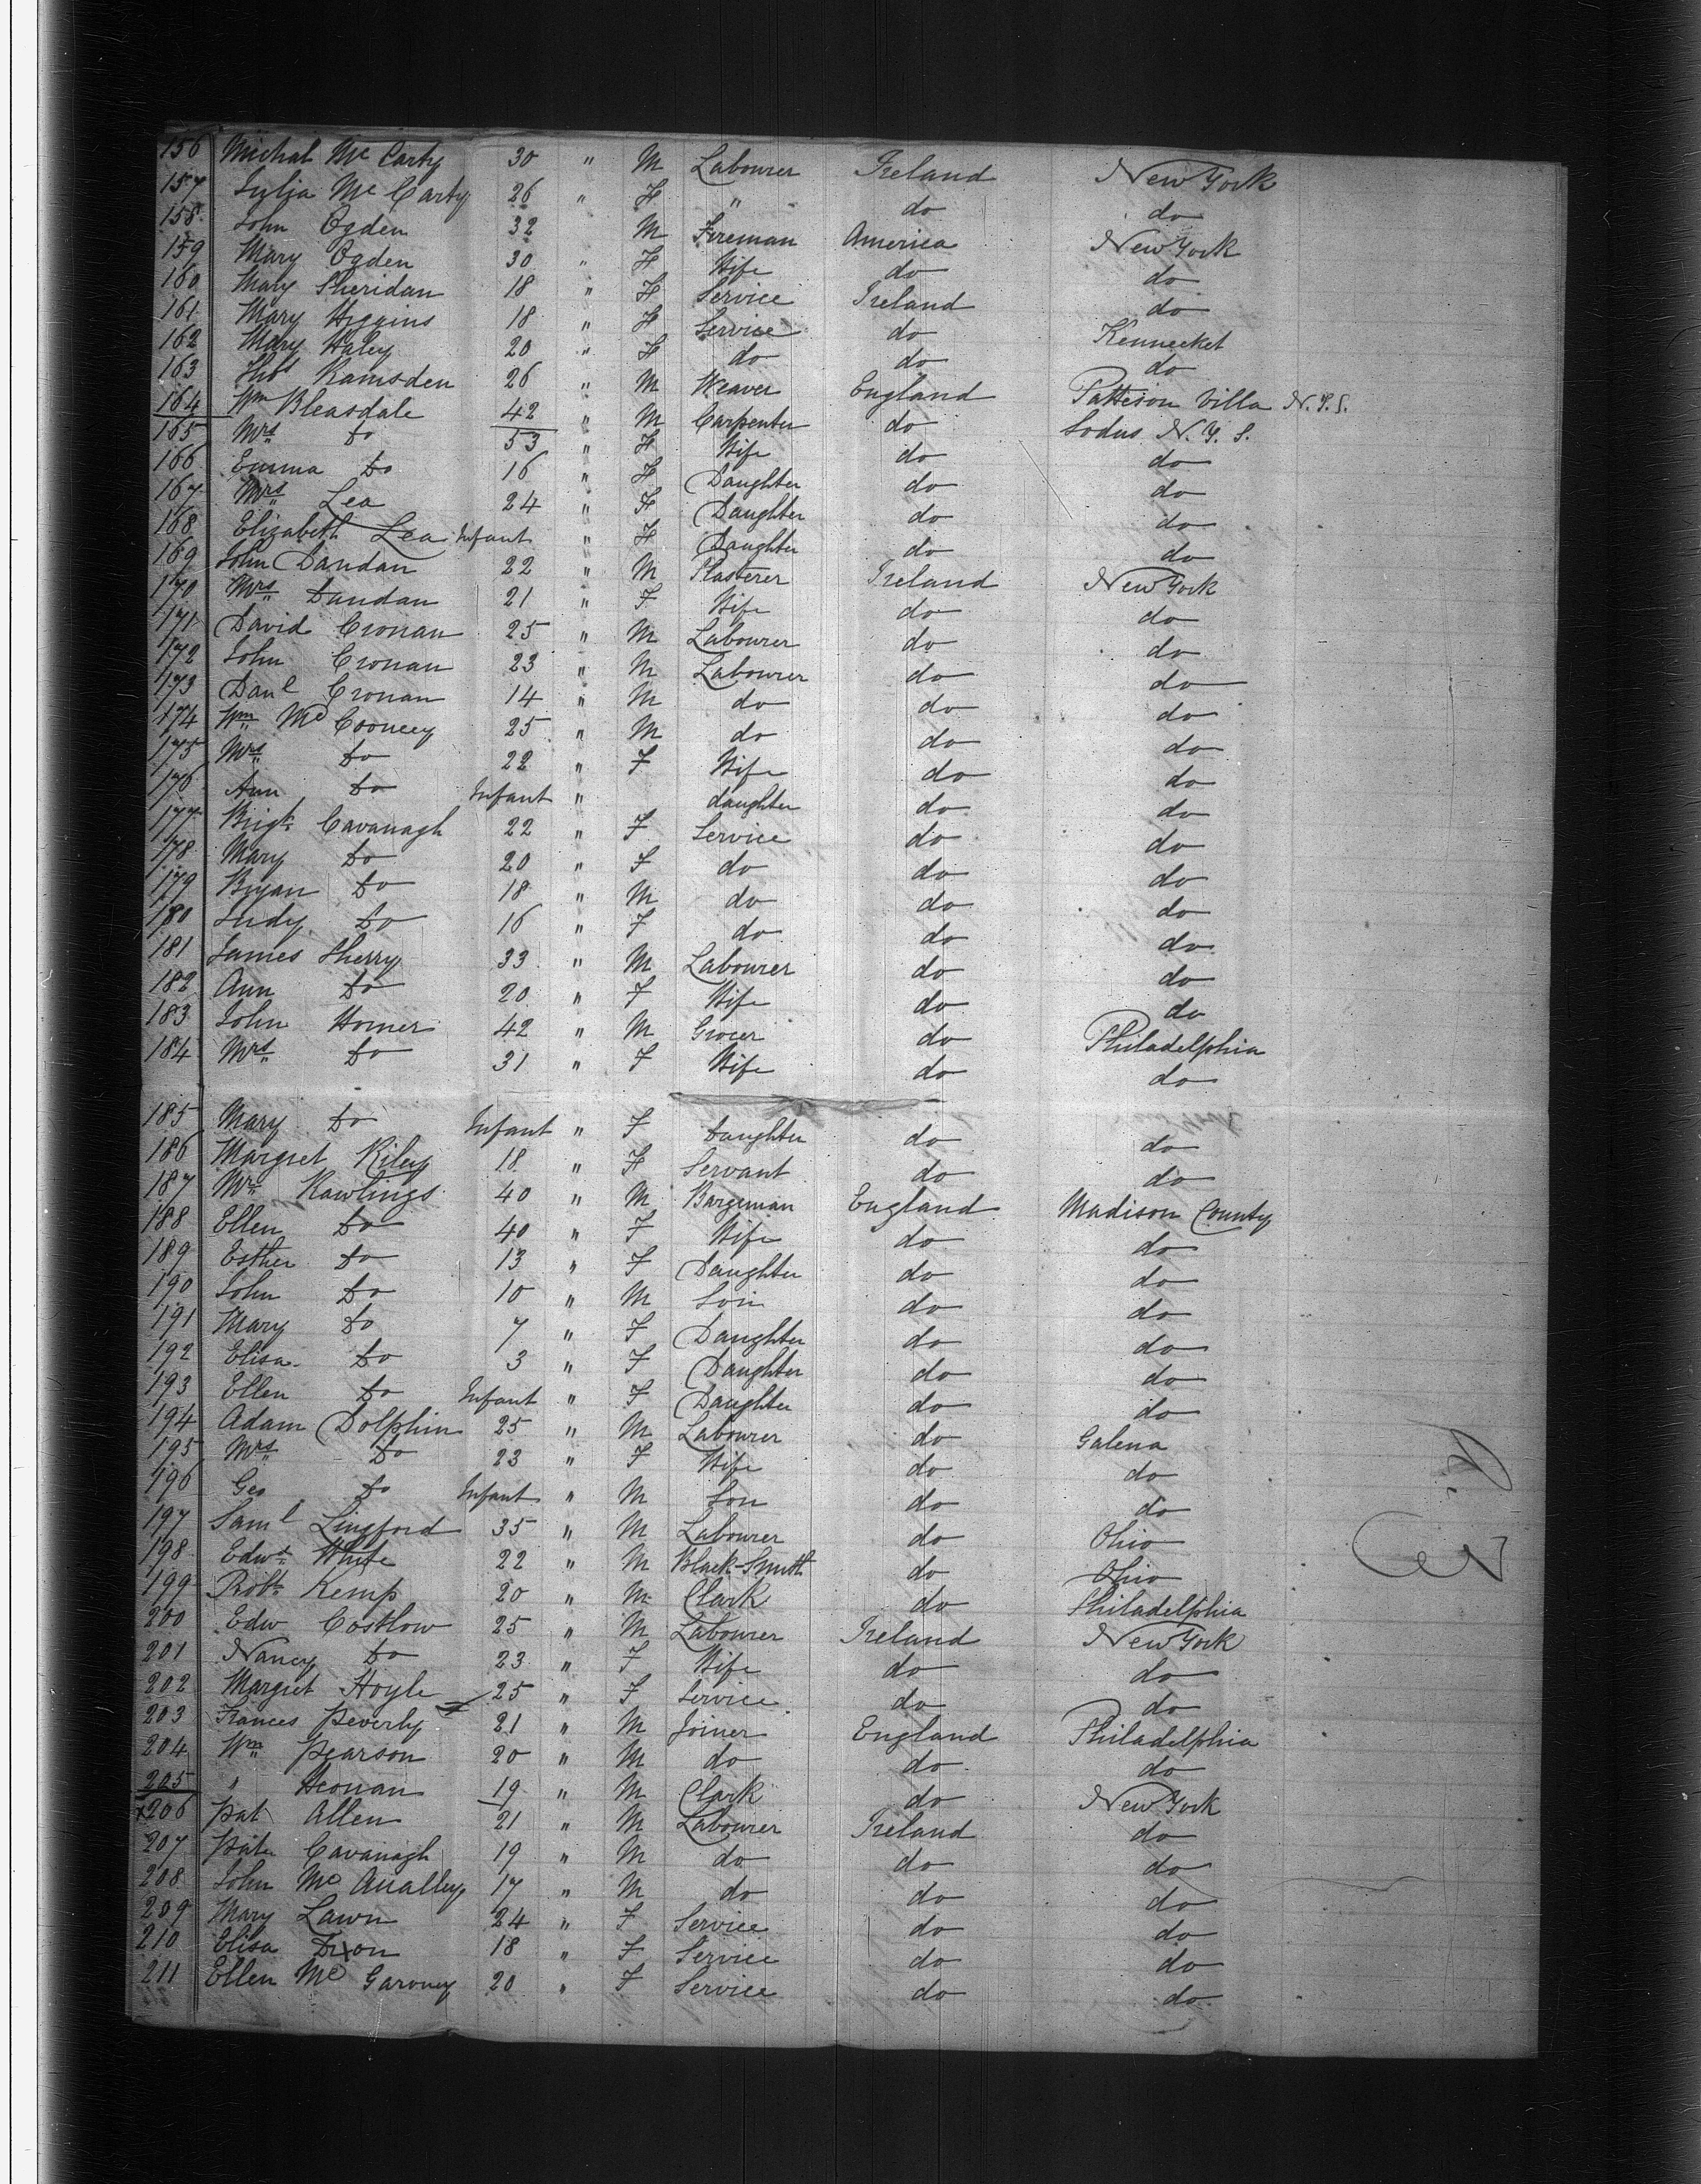 156 Michal Mc Carty 30 " M Labourer Ireland New York
157 Julia Mc Carty 26 " F " do do
158 John Ogden 32 M Fireman America New York
159 Mary Ogden 30 " F Wife do do
160 Mary Sheridan 18 " F Service Ireland do
161 Mary Higgins 18 " F Service do Kennecket
162 Mary Haley 20 " F do do do
163 Thos Ramsden 26 " M Weaver England Pattison Villa N.Y.S.
164 Wm Bleasdale 42 " M Carpenter do Sodus N.Y.S.
165 Mrs Do 53 " F Wife do do
166 Emma Do 16 " F Daughter do do
167 Mrs Lea 24 " F Daughter do do
168 Elizabeth Lea Infant " F Daughter do do
169 John Dandan 22 " M Plasterer Ireland New York
170 Mrs Dandan 21 " F Wife do do
171 David Cronan 25 " M Labourer do do
172 John Cronan 23 " M Labourer do do
173 Danl Cronan 14 " M do do do
174 Wm Mc 25 " M do do do
175 Mrs Do 22 " F Wife do do
176 Ann Do Infant " daughter do do
177 Brigt Cavanagh 22 " F Service do do
178 Mary Do 20 " F do do do
179 Bryan Do 18 " M do do do
180 Judy Do 16 " F do do do
181 James Sherry 33 " M Labourer do do
182 Ann Do 20 " F Wife do do
183 John Horner 42 " M Grocer do Philadelphia
184 Mrs Do 31 " F Wife do do
185 Mary Do Infant " F Daughter do do
186 Margret Riley 18 " F Servant do do
187 Rawlings 40 " M Bargeman England Madison County
188 Ellen Do 40 " F Wife do do
189 Esther Do 13 " F Daughter do do
190 John Do 10 " M Son do do
191 Mary Do 7 " F Daughter do do
192 Elisa Do 3 " F Daughter do do
193 Ellen Do Infant " F Daughter do do
194 Adam Dolphin 25 " M Labourer do Galena
195 Mrs Do 23 " F Wife do do
196 Geo Do Infant " M Son do do
197 Saml Lingford 35 " M Labourer do Ohio
198 Edwd White 22 " M Black-Smith do Ohio
199 Robt Kemp 20 " M Clark do Philadelphia
200 Edw Costlow 25 " M Labourer Ireland New York
201 Nancy Do 23 " F Wife do do
202 Margret Hoyle 25 " F Service do do
203 Frances Peverly 21 " M Joiner England Philadelphia
204 Wm Pearson 20 " M do do do
205 " Heonan 19 " M Clark do New York
206 Pat Allen 21 " M Labourer Ireland do
207 Pat Cavanagh 19 " M do do do
208 John Mc Anally 17 " M do do do
209 Mary Lawn 24 " F Service do do
210 Elisa Dixon 18 " F Service do do
211 Ellen Mc Garvney 20 " F Service do do